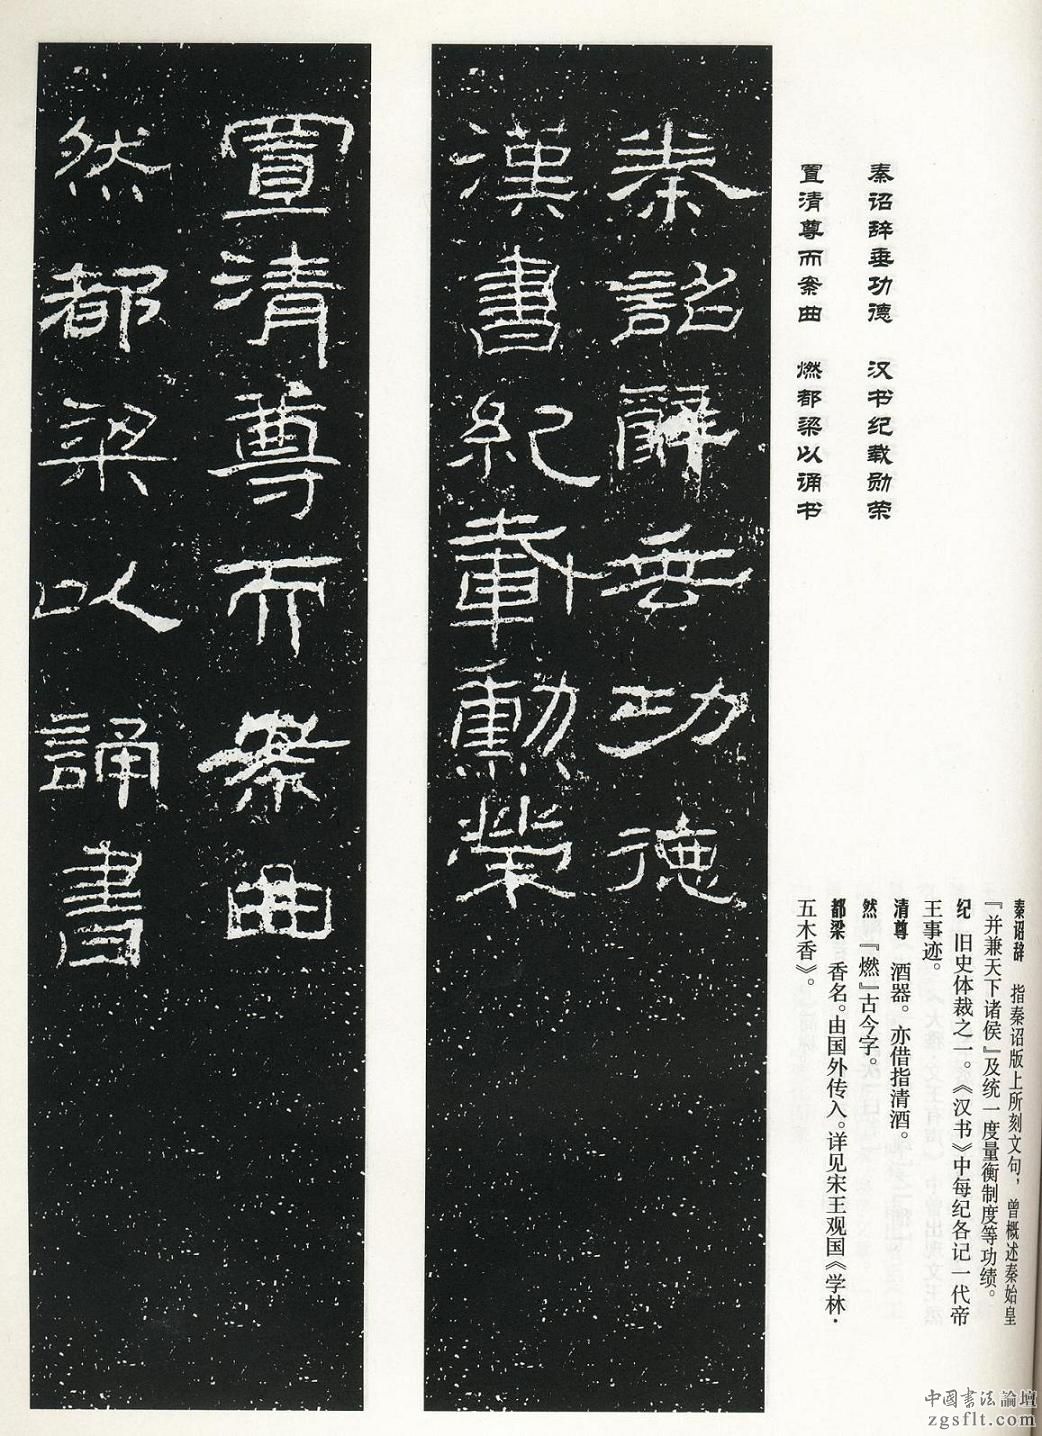 秦诏辞垂功德　汉书纪载勋荣
置清尊而案曲　燃都梁以诵书
秦诏辞　指秦诏版上所刻文句，曾概述秦始皇
『并兼天下诸侯』及统一度量衡制度等功绩。
纪　旧史体裁之一。《汉书》中每纪各记一代帝
王事迹。
清尊　酒器。亦借指清酒。
然　『燃』古今字。
都梁　香名。由国外传入。详见宋王观国《学林·
五木香》。
秦詔辭垂功德
漢書紀載勳榮
置清尊而案曲
然都梁以誦書
中國書法論壇
zgsflt.com